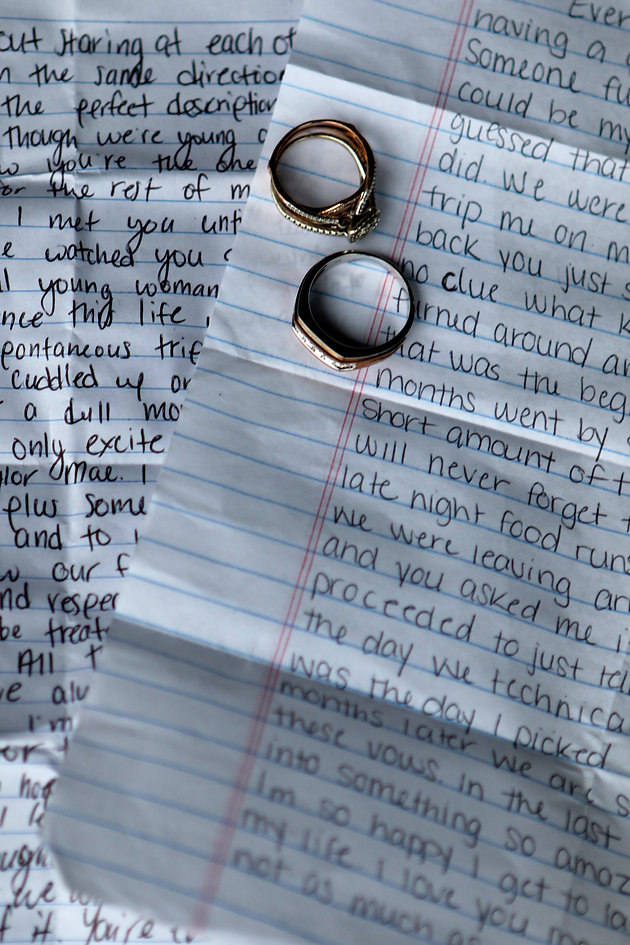 out staring at each ot
n the same direction
the perfect description
though we're young
w you're the one
for the rest of m
I met you unt
e watched you
ll young woman
nce this life
pontaneous trip
cuddled up or
a dull mo
only excite
lor Mae. I
plus some
and to
w our f
nd respe
be treat
All t
ve alw
I'm
or
hop
I
ugh
we
f it. You're
Ever
having a
Someone fu
could be my
guessed that
did. We were
trip me on m
back you just s
no clue what k
turned around an
that was the beg
months went by
short amount of t
will never forget t
late night food runs
we were leaving an
and you asked me i
proceeded to just tell
the day we technica
was the day I picked
months later we are s
these vows. In the last
into something so amaz
I'm so happy I get to
my life. I love you m
not as much as